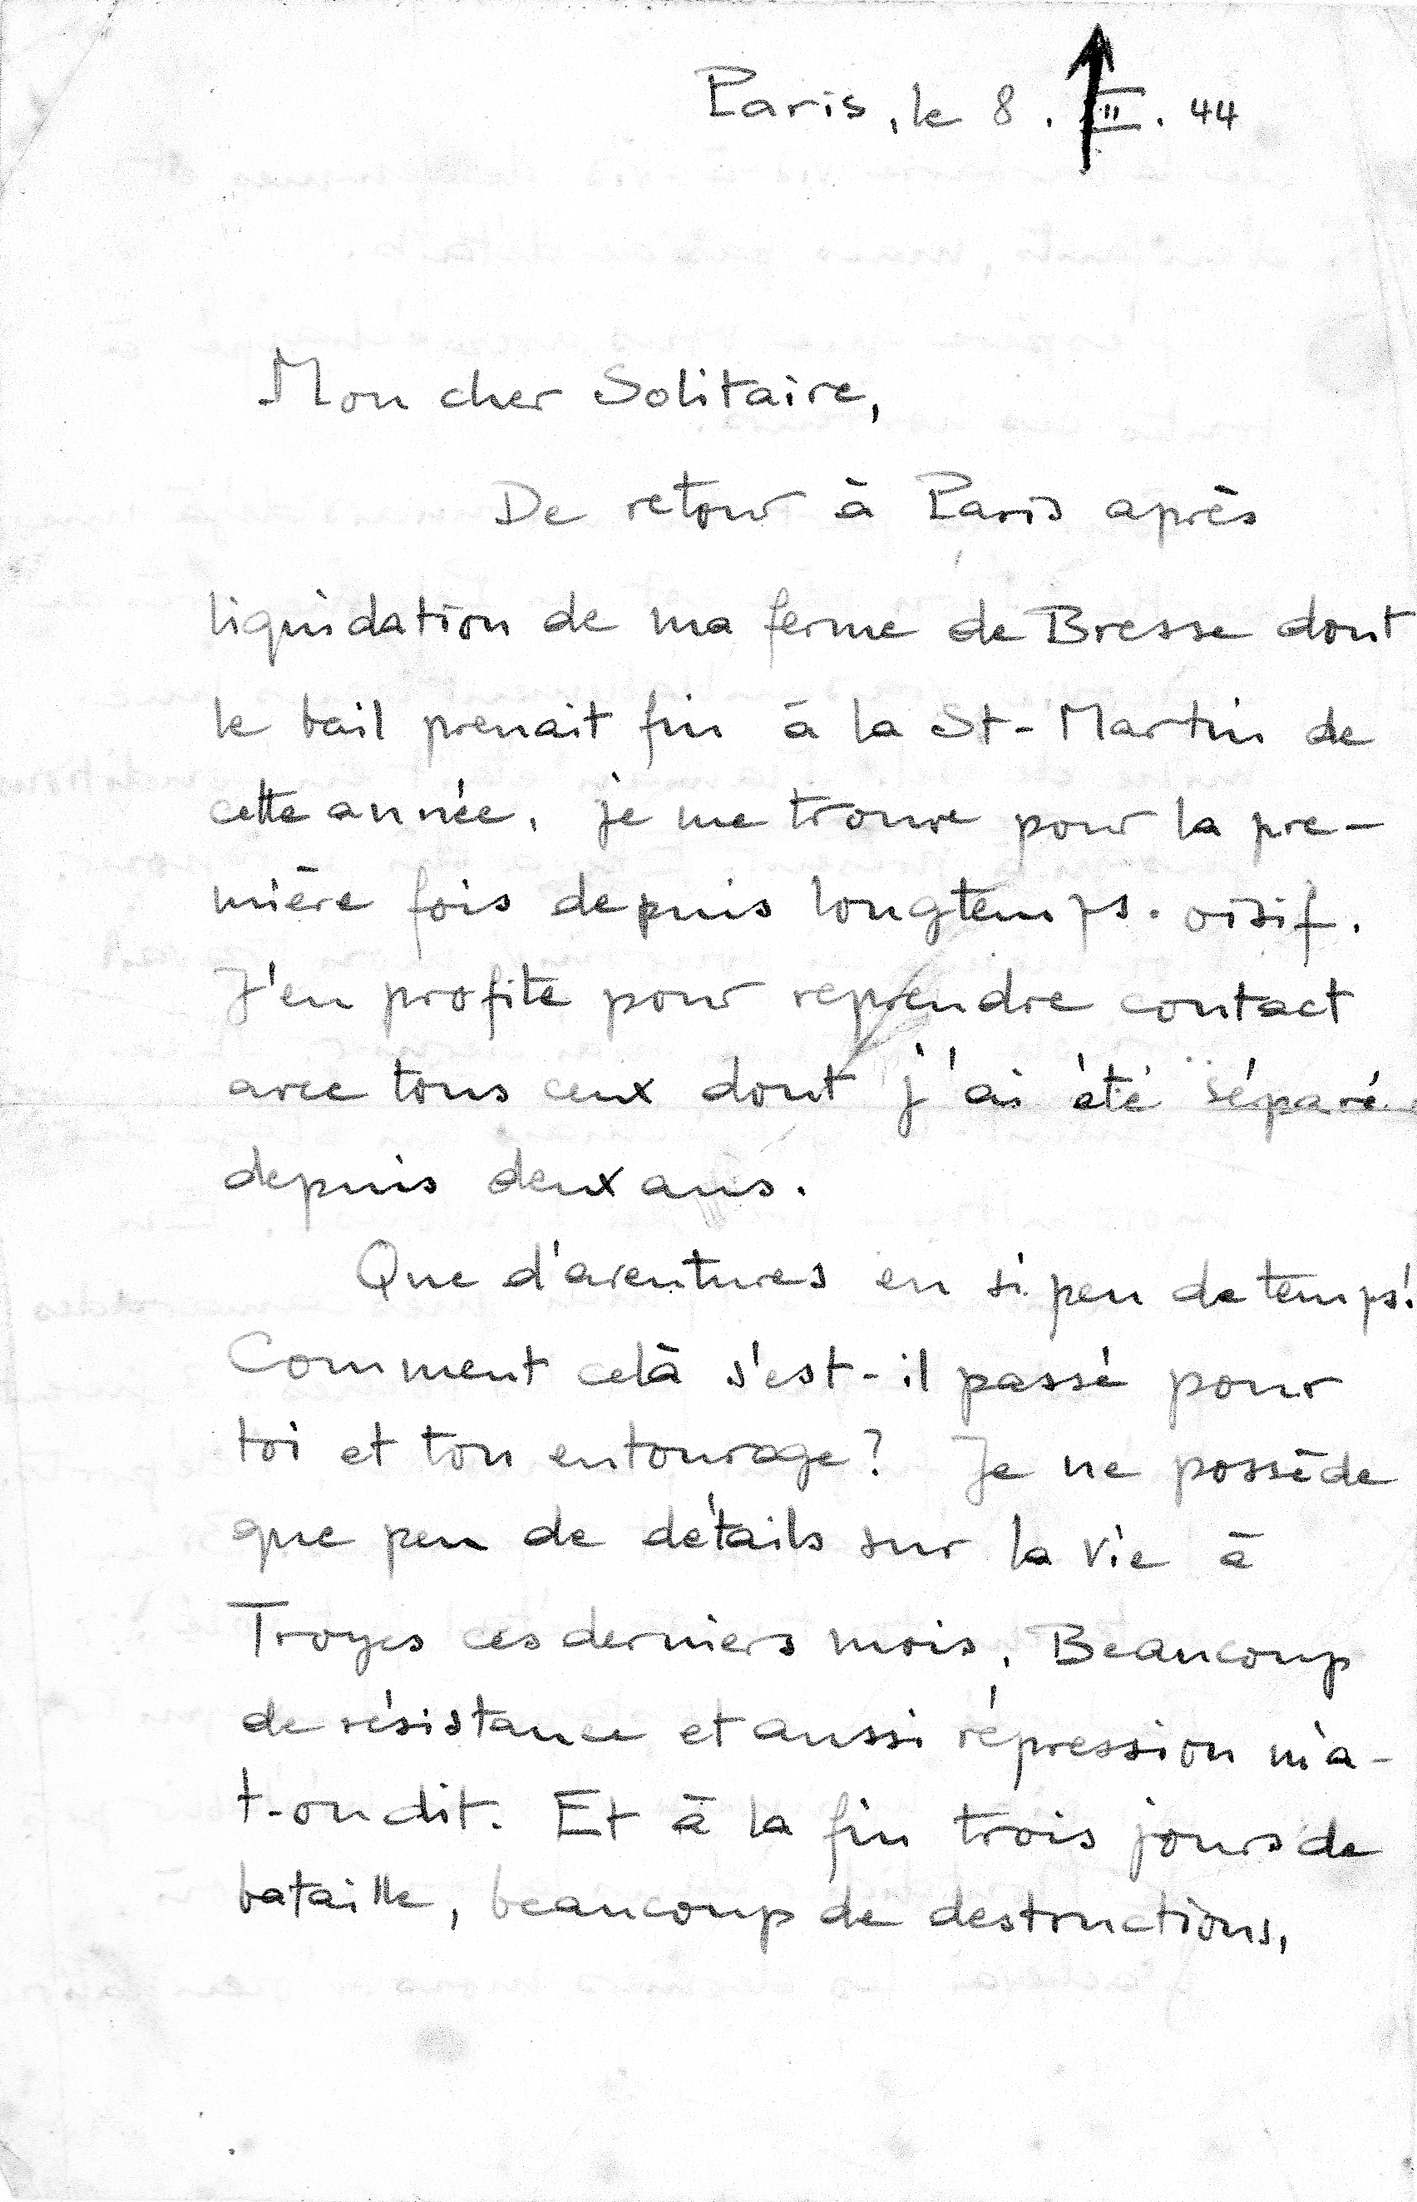 Paris, le 8. II. 44
Mon cher Solitaire,
De retour à Paris après
liquidation de ma ferme de Bresse dont
le bail prenait fin à la St-Martin de
cette année, je me trouve pour la pre-
mière fois depuis longtemps. oisif.
J'en profite pour reprendre contact
avec tous ceux dont j'ai été séparé
depuis deux ans.
Que d'aventures en si peu de temps!
Comment celà s'est-il passé pour
toi et ton entourage? Je ne possède
que peu de détails sur la vie à
Troyes ces derniers mois. Beaucoup
de résistance et aussi répression m'a-
t-on dit. Et à la fin trois jours de
bataille, beaucoup de destructions,